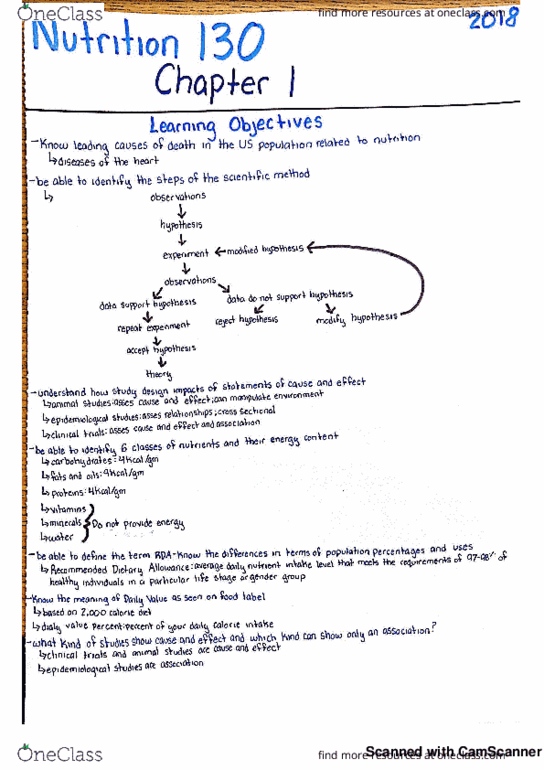 OneClass
find more resources at oneclass.com
2018
Nutrition 130
Chapter 1
Learning Objectives
-Know leading causes of death in the US population related to nutrition
↳diseases of the heart
-be able to identify the steps of the scientific method
↳ observations
hypothesis
experiment ← modified hypothesis
observations
data support hypothesis data do not support hypothesis
repeat experiment reject hypothesis modify hypothesis
accept hypothesis
theory
-understand how study design impacts of statements of cause and effect
↳animal studies: asses cause and effect; can manipulate environment
↳epidemiological studies: asses relationships; cross sectional
↳clinical trials: asses cause and effect and association
-be able to identify 6 classes of nutrients and their energy content
↳carbohydrates: 4kcal/gm
↳fats and oils: 9kcal/gm
↳proteins: 4kcal/gm
↳vitamins
↳minerals } Do not provide energy
↳water
-be able to define the term RDA-know the differences in terms of population percentages and uses
↳Recommended Dietary Allowance: average daily nutrient intake level that meets the requirements of 97-98% of
healthy individuals in a particular life stage or gender group
-Know the meaning of Daily Value as seen on food label
↳based on 2,000 calorie diet
↳ value percent: percent of your daily calorie intake
-what kind of studies show cause and effect and which kind can show only an association?
↳clinical trials and animal studies are cause and effect
↳epidemiological studies are association
OneClass
find more resources at oneclass.com
Scanned with CamScanner